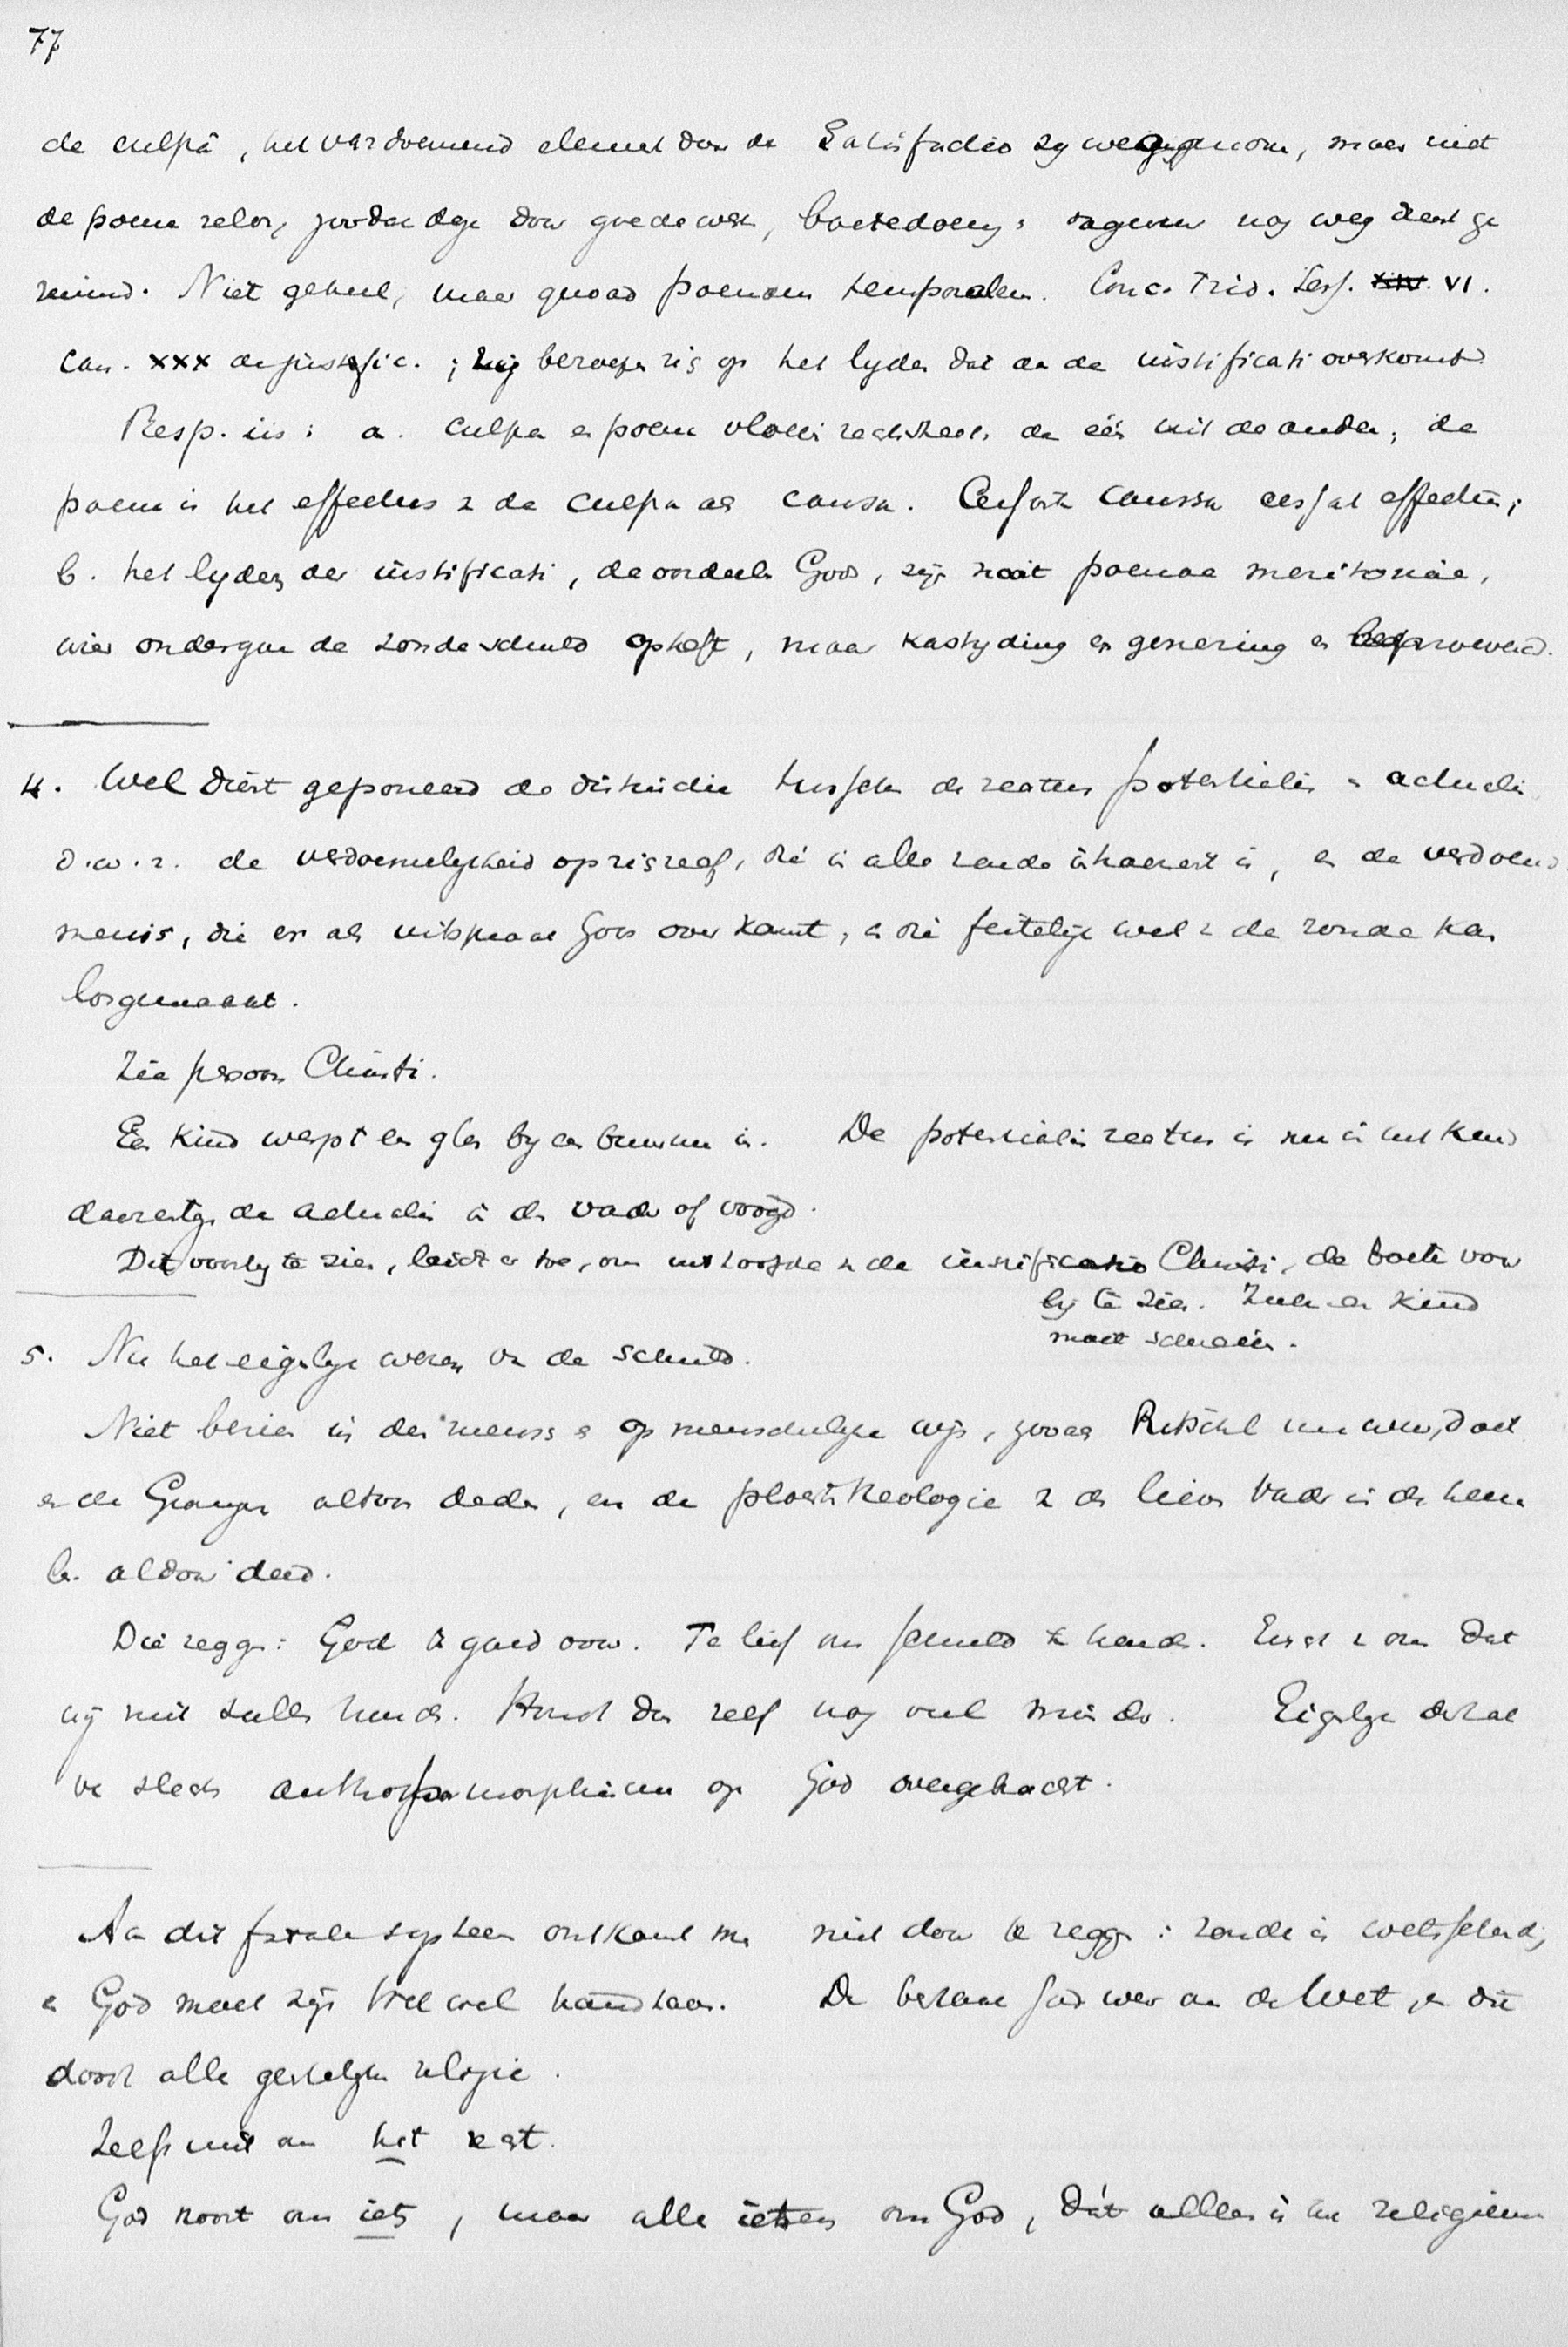 77
de culpâ, het verdoemend element door de Satisfactio zy weggenom, maar niet
de poena zelve, zoodat deze door goede werk, boetedoeng nog weg dient ge
ruimd. Niet geheel, maar quoad poenam temporalem. Conc. Trid. Sess. VI.
Can. XXX de justific. ; zy beroepen zig op het lyden dat de iustificati overkomt
Resp. iis : a. culpa en poena vloei rechtstreeks de één uit de ander; de
poena is het effectus v de culpa als causa. Cessante caussa cessat effectus;
b. het lyden der iustificati, de oordeelen Gods, zijn nooit poenae meritoriae,
wier ondergaan de zondeschuld opheft, maar kastyding en genezing en beproevend.
4. Wel dient geponeerd de distinctie tusschen de reatus potentialis en actualis
d.w.z. de verdoemelykheid op zigzelf, die in alle zonde inhaerent is, en de verdoem
menis, die er als uitspraak Gods over komt, en die feitelijk wel v de zonde kan
losgemaakt.
Zie persoon Christi.
Een kind werpt een glas by een buurman in. De potentialis reatus is nu in het kind
daarentg. de actualis in de vader of voogd.
Dit voorby te zien, leidt er toe, om ter hoofde v de iustificatio Christi, de boete voor
by te zien. Zulk een kind
moet schreien.
5. Nu het eigelyk wezen v de schuld.
Niet bezien in den mens en op menschelyke wijs, zooas Ritschl nu weer doet
en de Groninger altoos deden, en de theologie v de lieve Vader in de heme
l. aldoor deed.
Die zegg: God is goed voor. Te lief om schuld te houden. Eischt v ons dat
wij niet zulln houden. Houdt dus zelf nog veel minder. Eigelyk dehal
ve slechts anthropomorphisme op God overgebracht.
Aan dit fatale systeem ontkomt men niet door te zegg : zonde is wetsschend,
en God moet zijn Wet wel handhaven. Dan bestaat God weer om de Wet, en dit
doodt alle gestelyke religie.
Zelfs niet om het recht.
God nooit om iets, maar alle ietsen om God, dát alleen is het religieuse